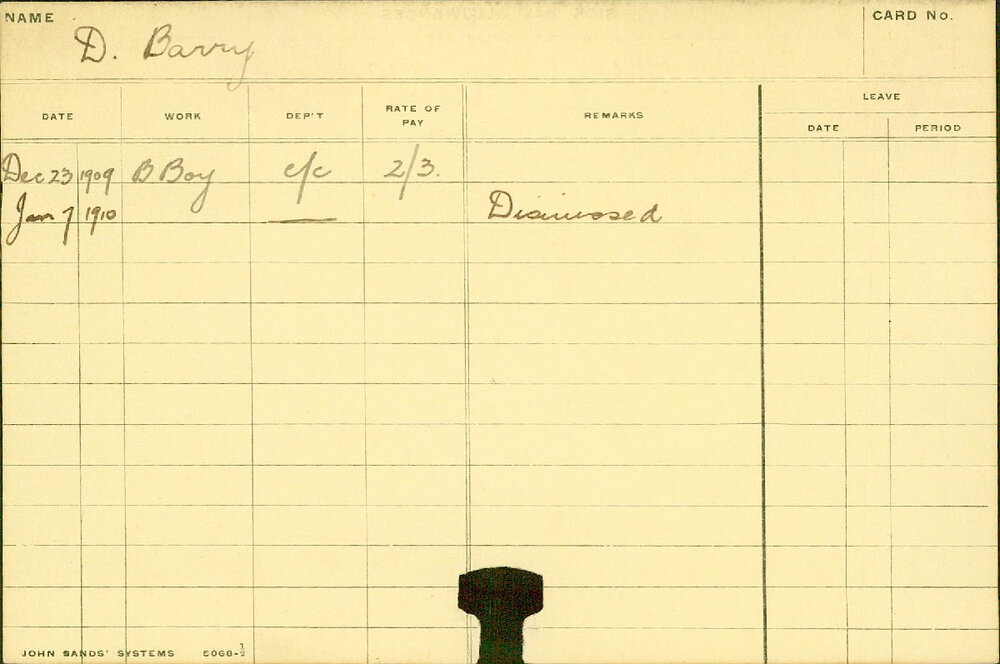 NAME
CARD No.
D. Barry
DATE WORK DEP'T RATE OF PAY REMARKS LEAVE
DATE PERIOD
Dec 23 1909 B Boy c/c 2/3.
Jan 7 1910 — Dismissed
JOHN SANDS' SYSTEMS 5068-½